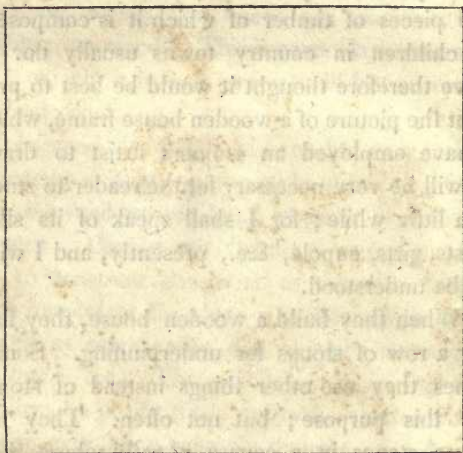 pieces of timber of which it is compose
children in country towns usually do.
ve therefore thought it would be best to p
t the picture of a wooden house frame, whi
have employed an to dra
will be very necessary for the reader to
a little while; for I shall speak of its sil
sts, girts, &c., presently, and I w
be understood.
hen they build a wooden house, they
a row of stones for underpinning.
nes they use other things instead of sto
this purpose; but not often. They